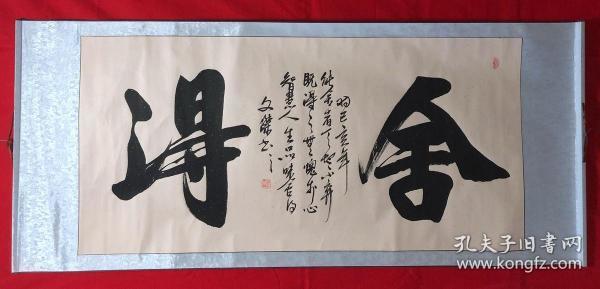 舍得
时己亥年
能舍者了然不弃
既得之无愧于心
智慧人生品味舍得
文荣书之
孔夫子旧书网
www.kongfz.com